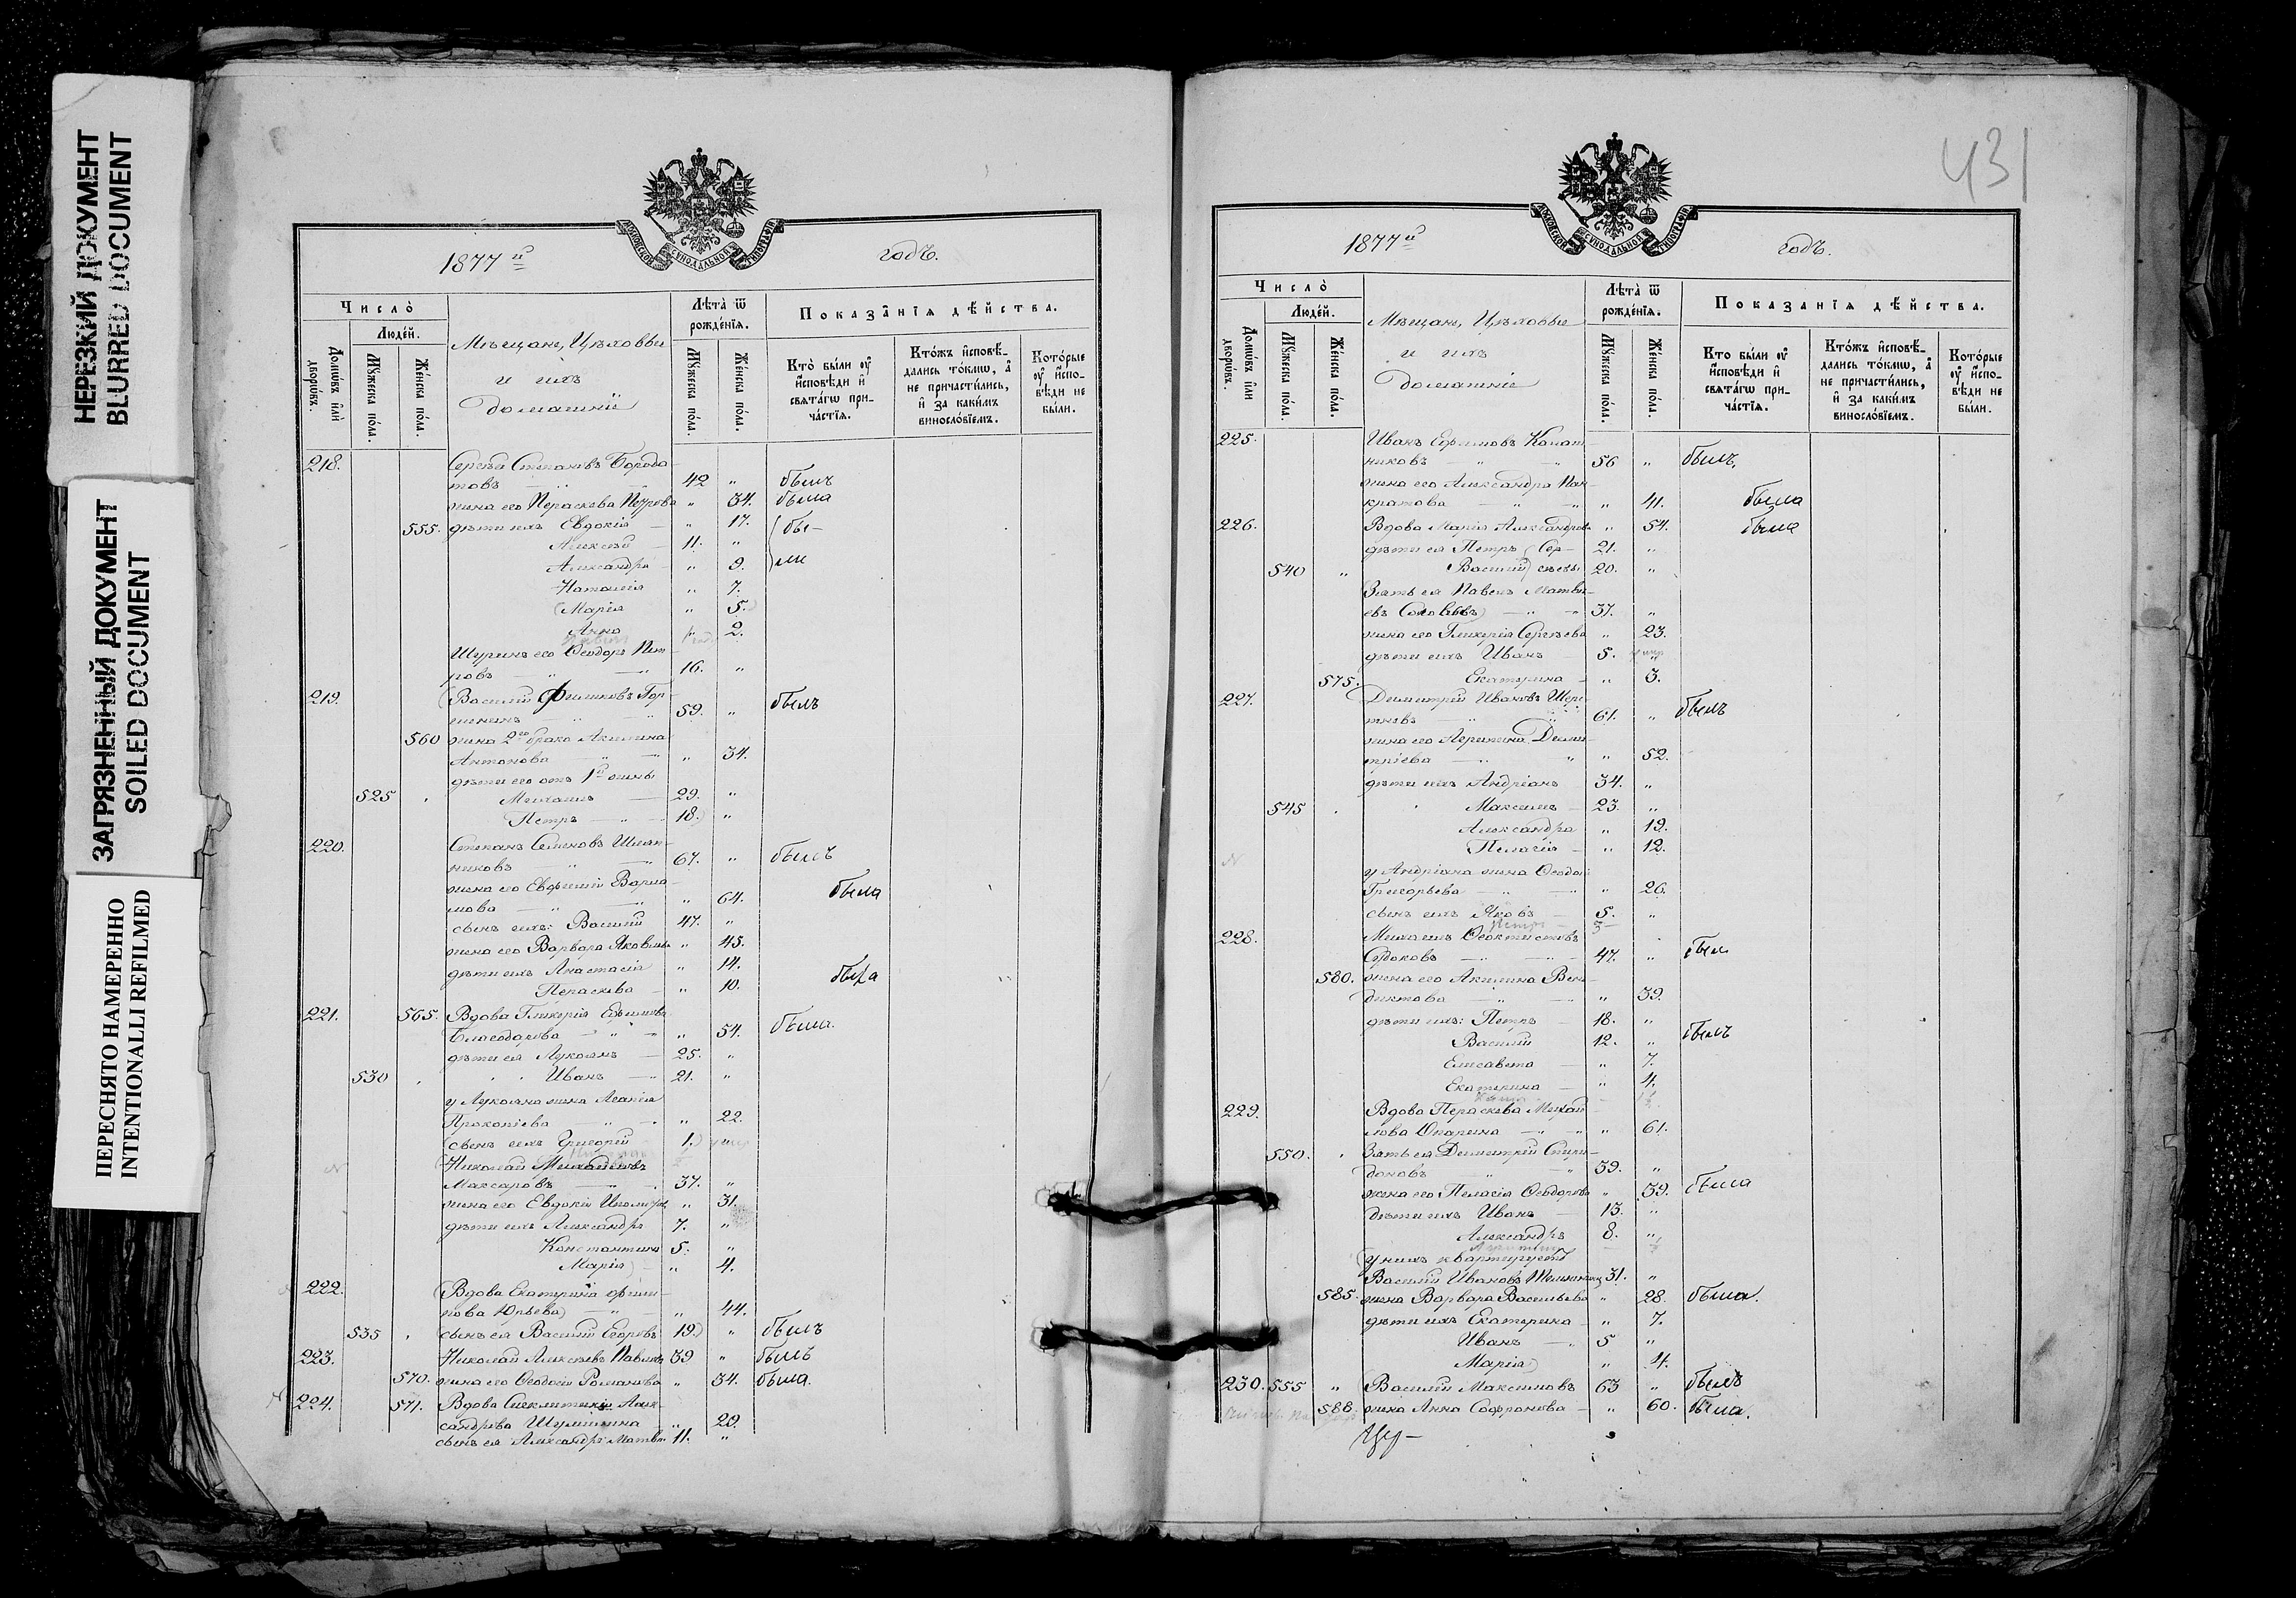 НЕРЕЗКИЙ ДОКУМЕНТ
BLURRED DOCUMENT
ЗАГРЯЗНЕННЫЙ ДОКУМЕНТ
SOILED DOCUMENT
ПЕРЕСНЯТО НАМЕРЕННО
INTENTIONALLI REFILMED
МОСКОВСКОЙ СѴНОДАЛЬНОЙ ТИПОГРАФІИ
1877й годъ.
Число̀
Люде́й.
Домѡ́въ и҆лѝ дворѡ́въ.
Мꙋ́жеска по́ла.
Же́нска по́ла.
Мѣщане, Цѣховые
и ихъ
домашніе
Лѣта̀ ѿ рожде́нїѧ.
Мꙋ́жеска по́ла.
Же́нска по́ла.
Показа̑нїѧ дѣ́йства.
Кто̀ бы́ли ᲂу҆ и҆сповѣди и҆ свѧта́гѡ прича́стїѧ.
Кто́жъ и҆сповѣ́дались то́кмѡ, а҆ не причасти́лись, и҆ за каки́мъ винослові́емъ.
Кото́рые ᲂу҆ и҆спо́вѣди не бы́ли.
218. Сергѣй Степановъ Бородо-
товъ 42 " былъ
жена его Параскева Петрова " 34. была
555. дѣти ихъ Евдокія " 17. бы-
Алексѣй 11. "
Александра " 9. ли
Наталія " 7.
(Марія " 5.)
Анна " 2.
Шуринъ его Ѳеодоръ Пет-
ровъ 16. "
219. (Василій Филиповъ Гор-
59. " былъ
560 жена 2го брака Акилина
Антонова " 34.
дѣти его отъ 1й жены
525 Михаилъ 29. "
Петръ 18.) "
220. Степанъ Семеновъ Шляп-
никовъ 67. " былъ
жена его Евфимія Варла-
мова " 64. была
сынъ ихъ: Василій 47. "
жена его Варвара Яковлева " 45.
дѣти ихъ Анастасія " 14.
Параскева " 10. была
221. 565. Вдова Гликерія Ефимова
Благодарова " 54. была.
дѣти ея Лукіанъ 25. "
530 Иванъ 21. "
у Лукіана жена Агапія
Прокопіева " 22.
(сынъ ихъ Григорій 1.)
(Николай Михайловъ
Макаровъ 37. "
жена его Евдокія " 31.
дѣти ихъ Александръ 7. "
Константинъ 5. "
Марія) " 4.
222. (Вдова Екатерина Фили-
пова Юрьева) " 44.
535 сынъ ея Василій Егоровъ 19.) " былъ
223. Николай Алексѣевъ Павловъ 39 " былъ
570. жена его Ѳеодосія Романова " 34. была.
224. 571. Вдова Синклитикія Алек-
сандрова " 29.
сынъ ея Александръ Матвѣ. 11. "
431
1877й годъ.
Число̀
Люде́й.
Домѡ́въ и҆лѝ дворѡ́въ.
Мꙋ́жеска по́ла.
Же́нска по́ла.
Мѣщане, Цѣховые
и ихъ
домашніе
Лѣта̀ ѿ рожде́нїѧ.
Мꙋ́жеска по́ла.
Же́нска по́ла.
Показа̑нїѧ дѣ́йства.
Кто бы́ли ᲂу҆ и҆сповѣди и҆ свѧта́гѡ прича́стїѧ.
Кто́жъ и҆сповѣ́дались то́кмѡ, а҆ не причасти́лись, и҆ за каки́мъ винослові́емъ.
Кото́рые ᲂу҆ и҆спо́вѣди не бы́ли.
225. Иванъ Ефимовъ Канат-
никовъ 56 " былъ,
жена его Александра Пан-
кратова " 41. была
226. Вдова Марія Александров. " 54. была
дѣти ея Петръ 21. "
540 " Василій 20. "
Зять ея Павелъ Матвѣ-
евъ Соловьевъ) 37. "
жена его Гликерія Сергѣева " 23.
дѣти ихъ Иванъ 5. "
575. Екатерина " 3.
227. Димитрій Ивановъ Шере-
метевъ 61. " былъ
жена его Агрипина Дими-
тріева " 52.
дѣти ихъ Андріанъ 34. "
545 Максимъ 23. "
Александра " 19.
Пелагія " 12.
у Андріана жена Ѳеодос.
Григорьева " 26.
сынъ ихъ Яковъ 5. "
228. Михаилъ Ѳеоктистовъ
47. " был
580. жена его Акилина Вене-
диктова " 39.
дѣти ихъ: Петръ 18. "
Василій 12. " былъ
Елисавета " 7.
Екатерина " 4.
229. Вдова Параскева Михай-
лова " 61.
550. Зять ея Димитрій Спири-
доновъ 39. "
жена его Пелагія Ѳеодорова " 39. была
дѣти ихъ Иванъ 13. "
Александръ 8. "
(у нихъ квартируетъ
Василій Ивановъ 31. "
585. жена Варвара Васильева " 28. была.
дѣти ихъ Екатерина " 7.
Иванъ 5 "
Марія) " 4.
230. 555 " Василій Максимовъ 63 " былъ
588. жена Анна Софронова " 60. была.